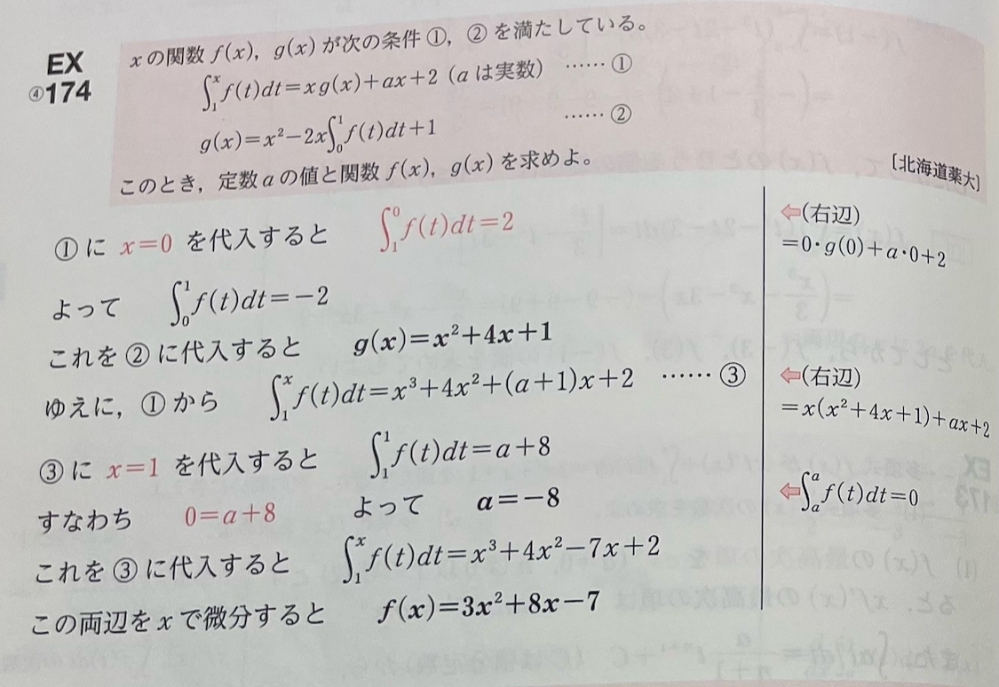 EX
④174
xの関数 f(x), g(x) が次の条件 ①, ② を満たしている。
∫₁ˣf(t)dt=xg(x)+ax+2 (a は実数) …… ①
g(x)=x²−2x∫₀¹f(t)dt+1 …… ②
このとき，定数 a の値と関数 f(x), g(x) を求めよ。
[北海道薬大]
①に x=0 を代入すると ∫₁⁰f(t)dt=2
⇐(右辺)
=0・g(0)+a・0+2
よって ∫₀¹f(t)dt=−2
これを ② に代入すると g(x)=x²+4x+1
ゆえに，① から ∫₁ˣf(t)dt=x³+4x²+(a+1)x+2 …… ③
⇐(右辺)
=x(x²+4x+1)+ax+2
③に x=1 を代入すると ∫₁¹f(t)dt=a+8
⇐∫ₐᵃf(t)dt=0
すなわち 0=a+8 よって a=−8
これを ③ に代入すると ∫₁ˣf(t)dt=x³+4x²−7x+2
この両辺を x で微分すると f(x)=3x²+8x−7